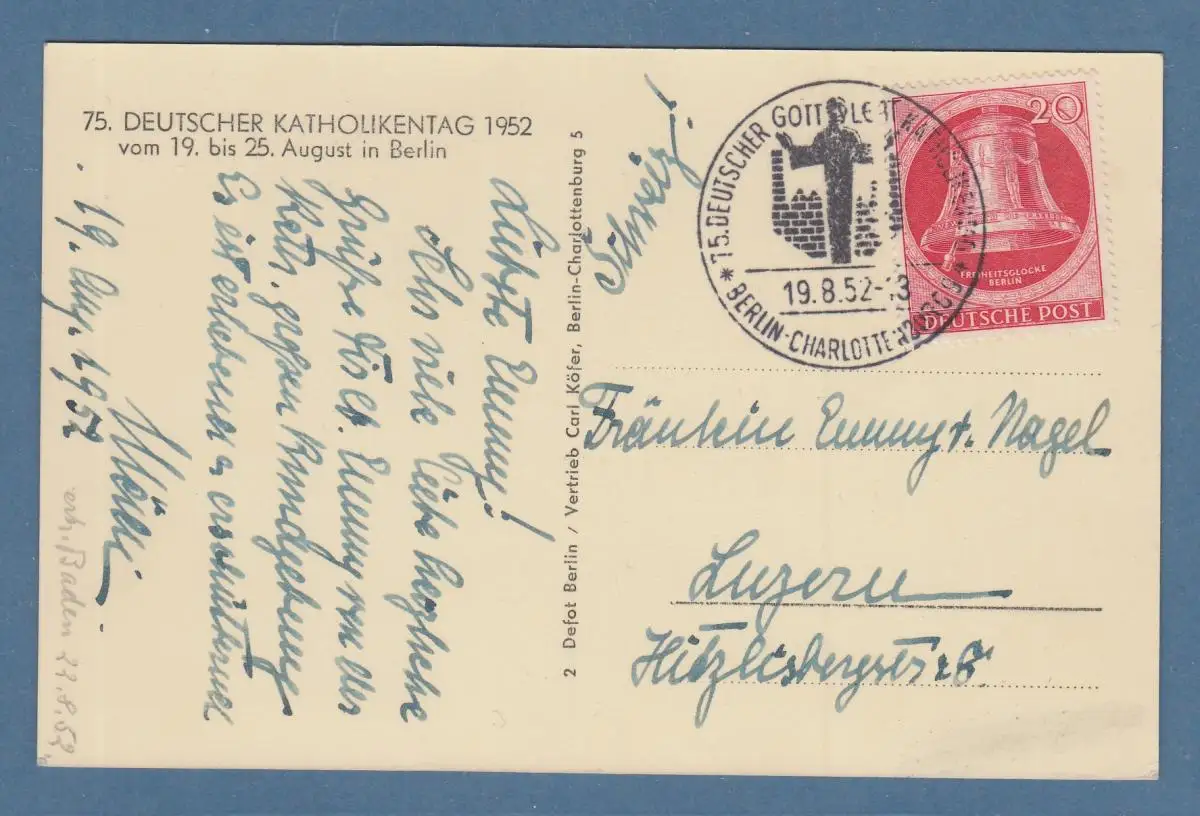 75. DEUTSCHER KATHOLIKENTAG 1952
vom 19. bis 25. August in Berlin
19. Aug. 1952
Liebste Emmy!
Ich viele liebe herzliche
Grüsse Dir lb. Emmy von der
Kath. grossen Kundgebung
Es ist erhebend & erschütternd
ert. Baden 23.8.52,
2 Defot Berlin / Vertrieb Carl Köfer, Berlin-Charlottenburg 5
Schweiz
* 75. DEUTSCHER KATHOLIKENTAG *
GOTT LEBT
19.8.52-13
BERLIN-CHARLOTTENBURG
20
FREIHEITSGLOCKE
BERLIN
DEUTSCHE POST
Fräulein Emmy v. Nagel
Luzern
Hitzlisbergstr 8